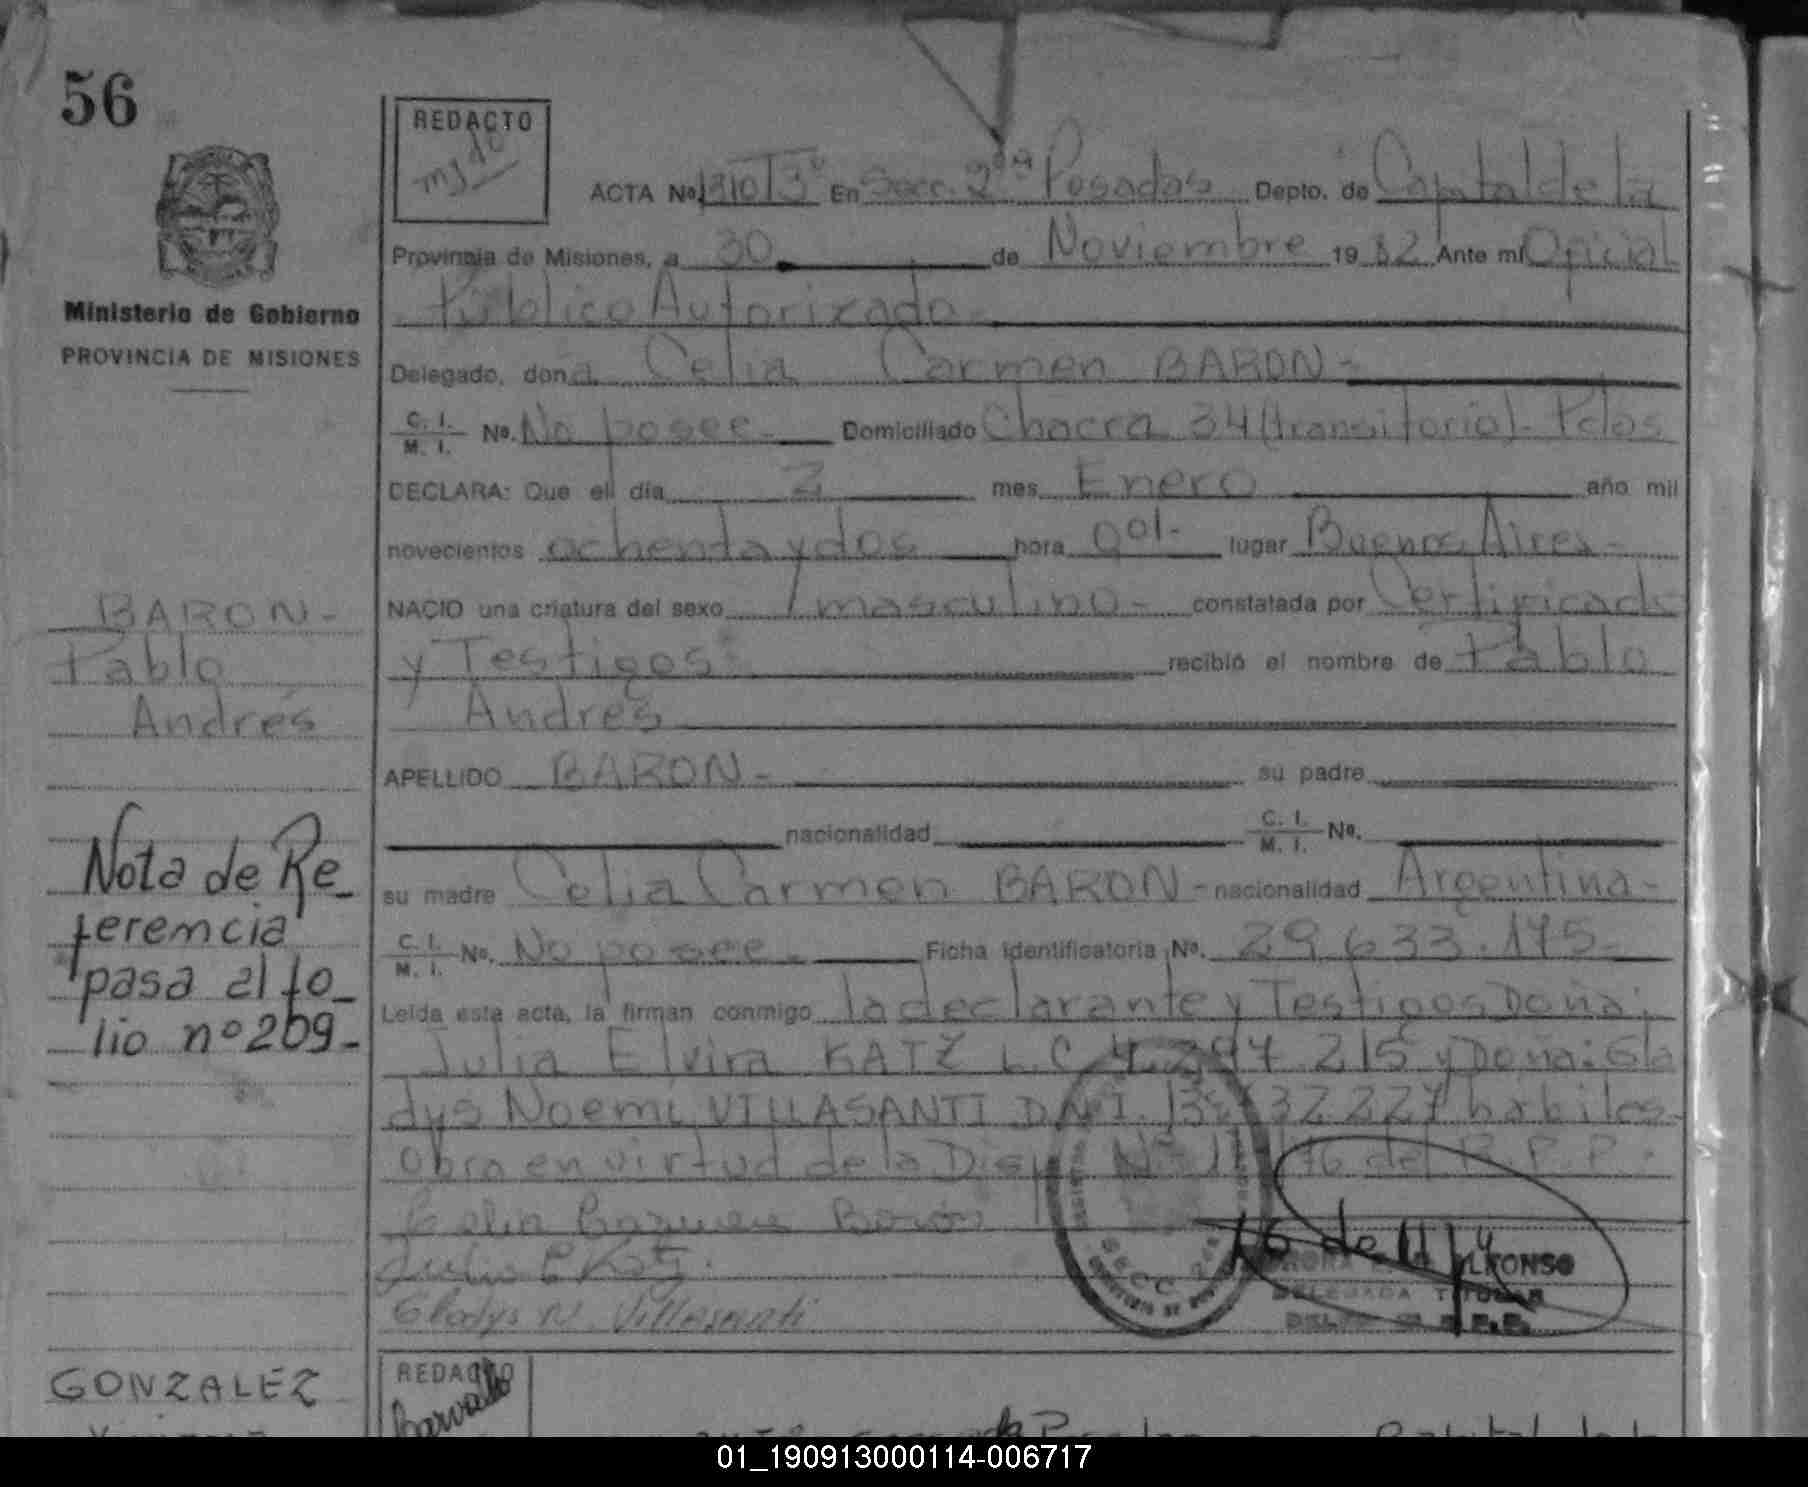 56
REDACTO
ACTA No 1310 T3° En Secc. 2da Posadas Depto. de Capital de la
Provincia de Misiones, a 30 de Noviembre 19 82 Ante mí Oficial
Ministerio de Gobierno
Público Autorizado
PROVINCIA DE MISIONES
Delegado, don a Celia Carmen BARON-
C. I. M. I. No. No posee- Domiciliado Chacra 34 (transitorio)- Pdas
DECLARA: Que el día 2 mes Enero año mil
novecientos ochenta y dos hora 0 01- lugar Buenos Aires-
BARON-
NACIO una criatura del sexo masculino- constatada por Certificado
Pablo
y Testigos recibió el nombre de Pablo
Andrés
Andrés
APELLIDO BARON- su padre
nacionalidad C. I. M. I. No.
Nota de Re-
su madre Celia Carmen BARON- nacionalidad Argentina-
ferencia
C. I. M. I. No. No posee- Ficha identificatoria No. 29.633.175-
pasa al fo-
Leída esta acta, la firman conmigo la declarante y Testigos Doña:
lio nº 209-
Julia Elvira KATZ L.C 4.247.215 y Doña: Gla
dys Noemi VILLASANTI D.N.I. 227 habiles-
Obra en virtud de la Disp. Nº 11/76 del R.P.P.
Celia Carmen Baron
16 de 11/
Julia E Katz.
ALFONSO
DELEGADA TITULAR
Gladys N. Villasanti
SECC. 2da
GONZALEZ
REDACTO
01_190913000114-006717